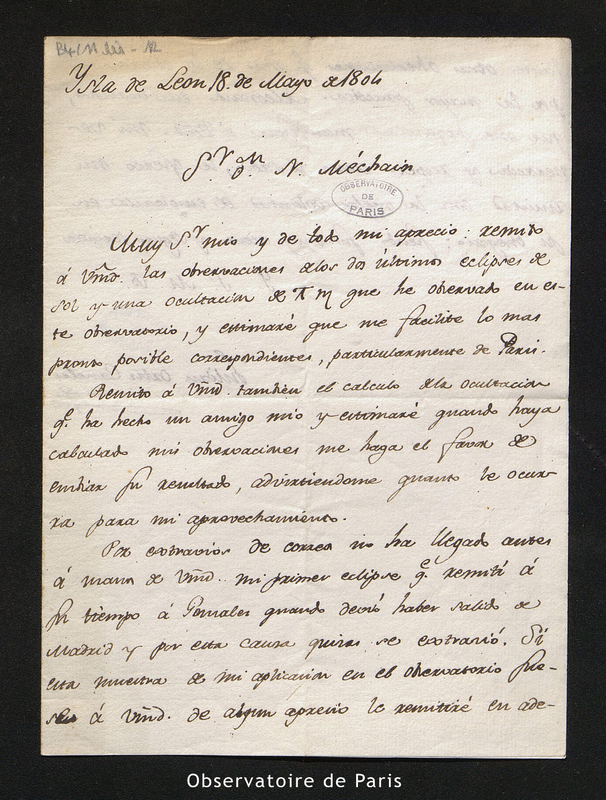 B4/11 bis - 12
Ysla de Leon 18. de Mayo de 1804
Sr. Dn. N Méchain
OBSERVATOIRE
DE
PARIS
Muy Sr mio y de todo mi aprecio: remito
á Vmd. las observaciones delos dos ultimos eclipses de
Sol y una ocultacion de π ♏ que he observado en es-
te observatorio, y estimaré que me facilite lo mas
pronto posible correspondientes, particularmente de Paris.
Remito á Vmd. tambien el calculo dela ocultacion
qe. ha hecho un amigo mio y estimaré quando haya
calculado mis observaciones me haga el favor de
embiar su resultado, advirtiendome quanto le ocur-
ra para mi aprovechamiento.
Por extravios de correo no ha llegado antes
á manos de Vmd. mi primer eclipse qe. remití á
su tiempo á Gonzales quando devió haber salido de
Madrid y por esta causa quizas se extravió. Si
esta muestra de mi aplicacion en el observatorio fue-
se á Vmd. de algun aprecio le remitiré en ade-
Observatoire de Paris